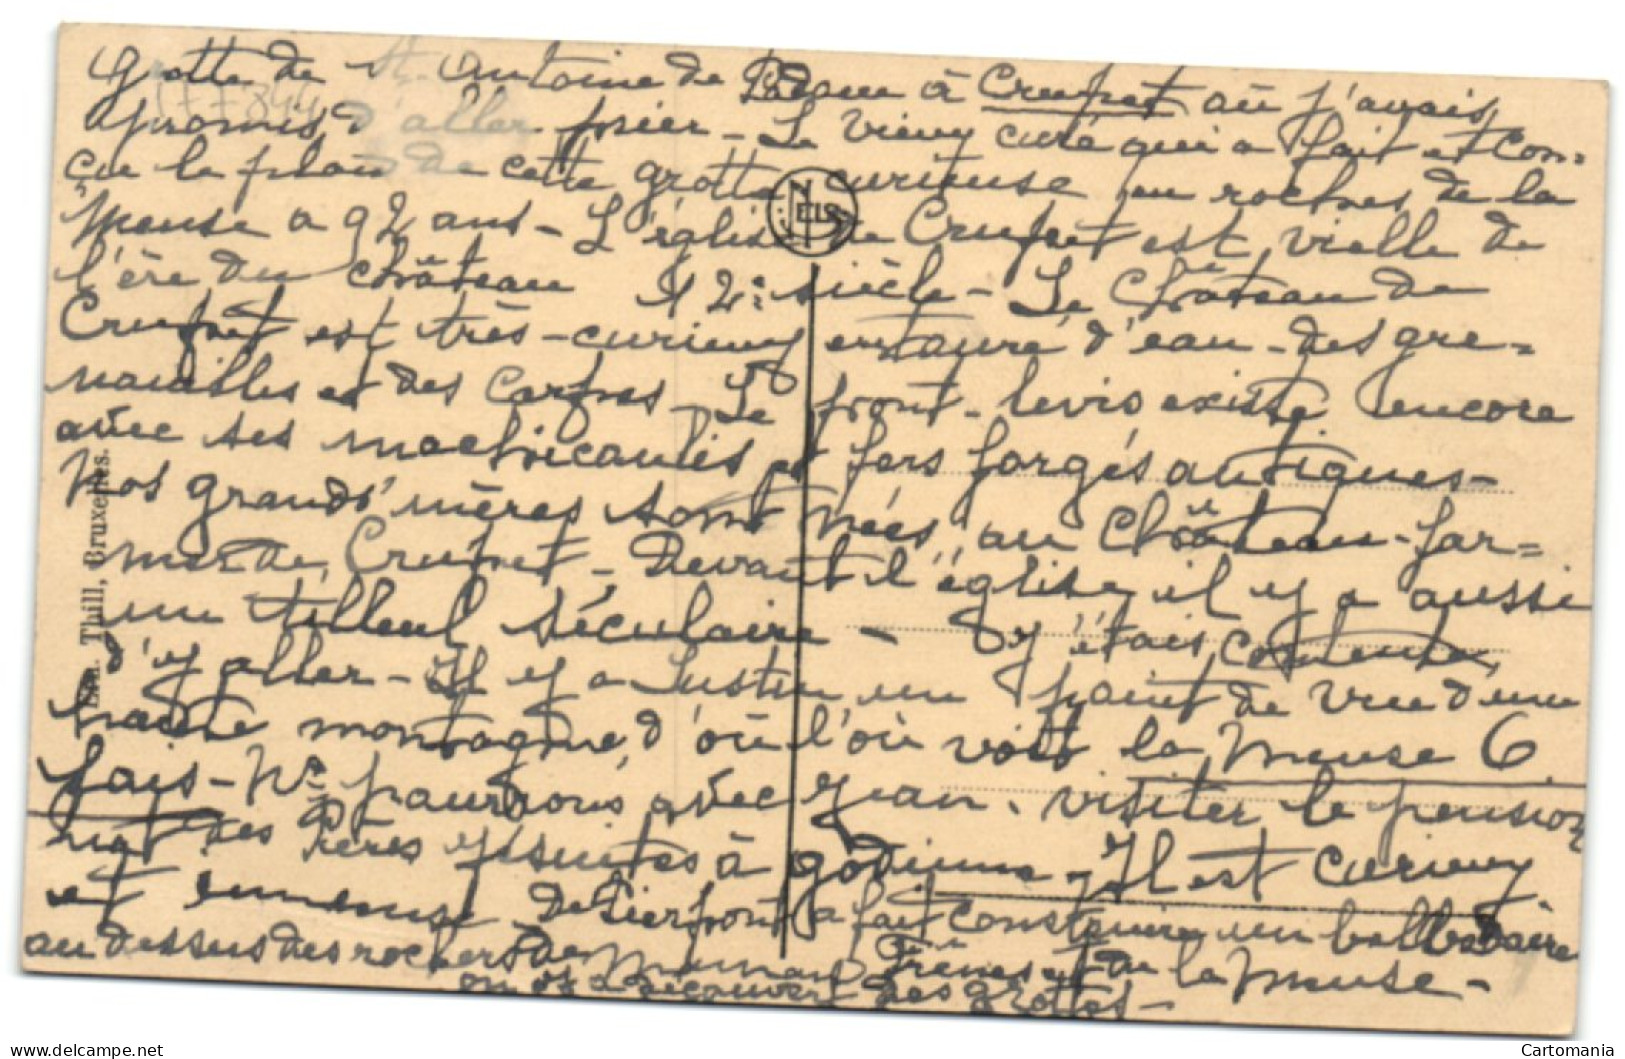 grotte de St. Antoine de Padoue à Crupet où j'avais
promis d'aller prier - Le vieux curé qui a fait et con=
çu le plan de cette grotte curieuse en roches de la
Meuse a 92 ans - L'église de Crupet est vielle de
l'ère du château 12e siècle - Le Château de
Crupet est très-curieux entouré d'eau - des gre=
nouilles et des carpes - Le pont-levis existe encore
avec ses machicoulis et fers forgés antiques -
Nos grands'mères sont nées au Château-fer=
me de Crupet - Devant l'église, il y a aussi
un tilleul séculaire - J'étais contente
d'y aller - Il y a Lustin un point de vue d'une
haute montagne d'où l'où voit la Meuse 6
fois - Ns pourrons avec Jean visiter le pension
nat des Pères Jésuites à Godinne - Il est curieux
et immense De Pierpont a fait construire un balbadaire
au dessus des rochers de Frênes et de la Meuse -
on y a découvert des grottes -
177344
NELS
Ern. Thill, Bruxelles.
Cartomania
delcampe.net